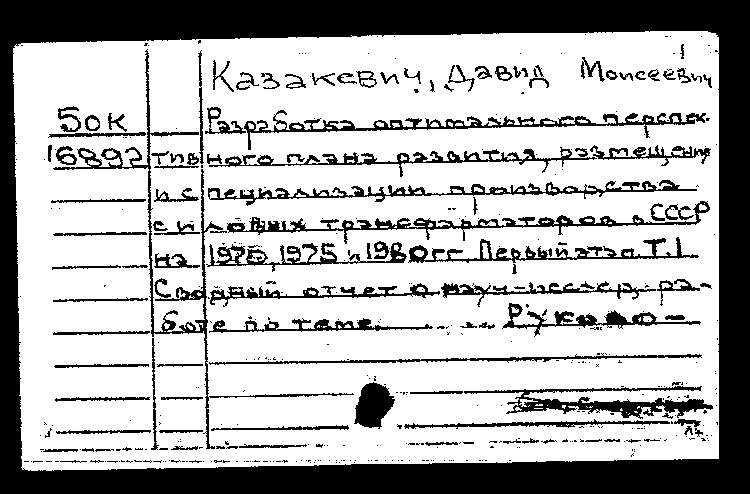 1
Казакевич, Давид Моисеевич
50к Разработка оптимального перспек-
16892 тивного плана развития, размещения
и специализации производства
силовых трансформаторов в СССР
на 1970, 1975 и 1980 гг. Первый этап. Т.1
Сводный отчет о науч.-исслед. ра-
боте по теме. ... ... Руково-